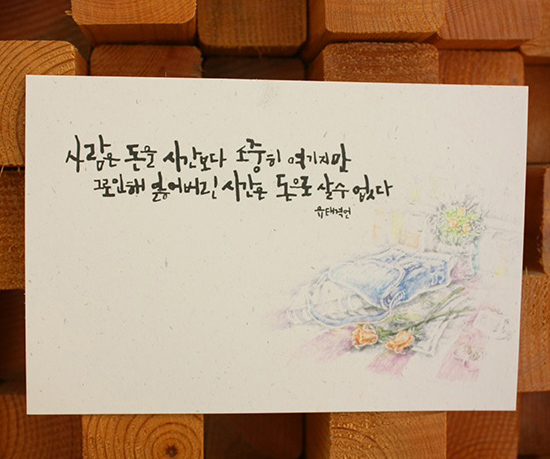 사람은 돈을 시간보다 소중히 여기지만
그로인해 잃어버린 시간은 돈으로 살수 없다
유태격언